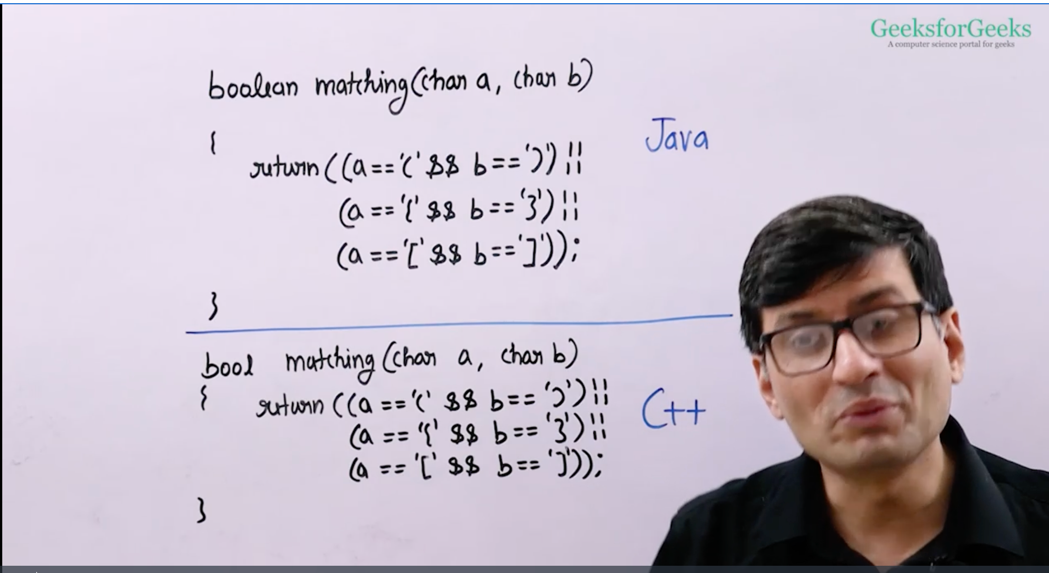 GeeksforGeeks
A computer science portal for geeks
boolean matching(char a, char b)
{
return((a=='(' && b==')')||
(a=='{' && b=='}')||
(a=='[' && b==']'));
}
Java
bool matching(char a, char b)
{
return((a=='(' && b==')')||
(a=='{' && b=='}')||
(a=='[' && b==']'));
}
C++